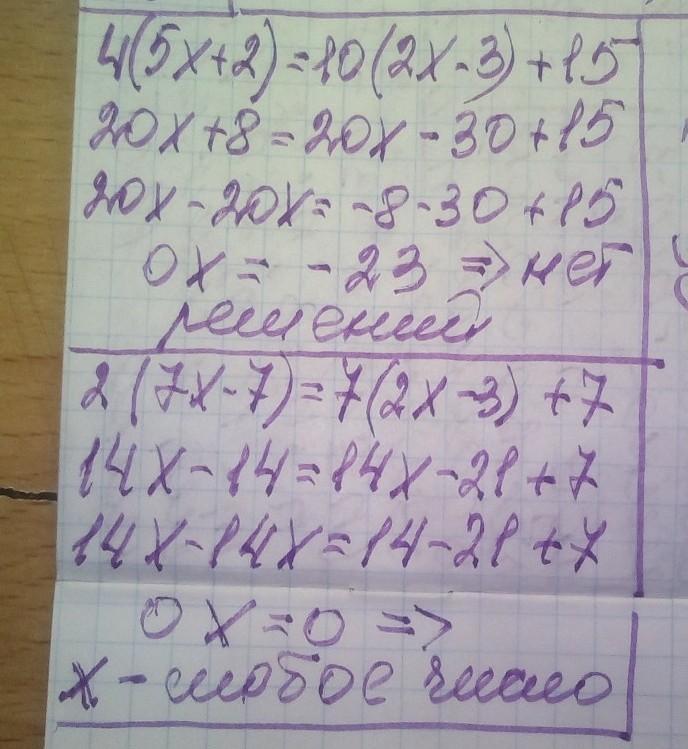 4(5x+2)=10(2x-3)+15
20x+8=20x-30+15
20x-20x=-8-30+15
0x=-23 => нет
решений
2(7x-7)=7(2x-3)+7
14x-14=14x-21+7
14x-14x=14-21+7
0x=0 =>
x-любое число